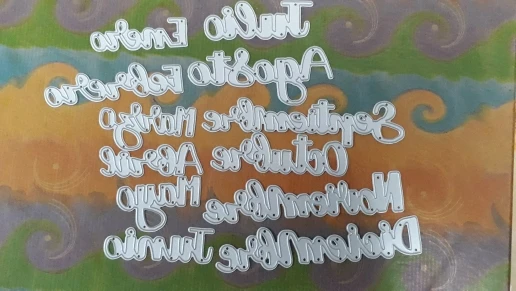 Julio Enero
Agosto Febrero
Septiembre Marzo
Octubre Abril
Noviembre Mayo
Diciembre Junio